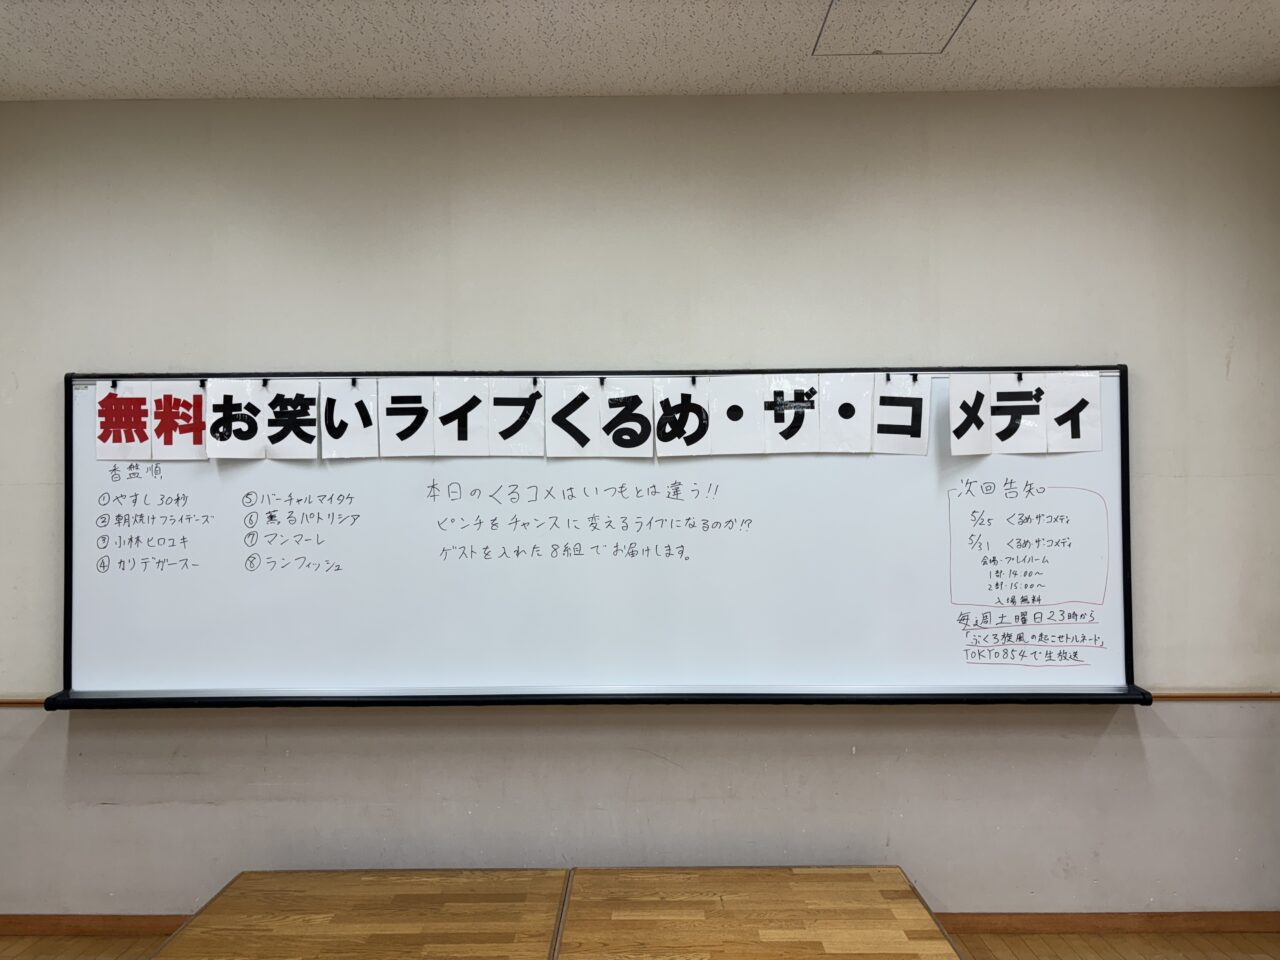 無料お笑いライブくるめ・ザ・コメディ
香盤順
①やすし30秒
②朝焼けフライデーズ
③小林ヒロユキ
④カリデガースー
⑤バーチャルマイタケ
⑥薫るパトリシア
⑦マンマーレ
⑧ランフィッシュ
本日のくるコメはいつもとは違う!!
ピンチをチャンスに変えるライブになるのか!?
ゲストを入れた8組でお届けします。
次回告知
5/25 くるめ・ザ・コメディ
5/31 くるめ・ザ・コメディ
会場・プレイルーム
1部・14:00〜
2部・15:00〜
入場無料
毎週土曜日23時から
「ぶくろ旋風の起こせトルネード」
TOKYO854で生放送